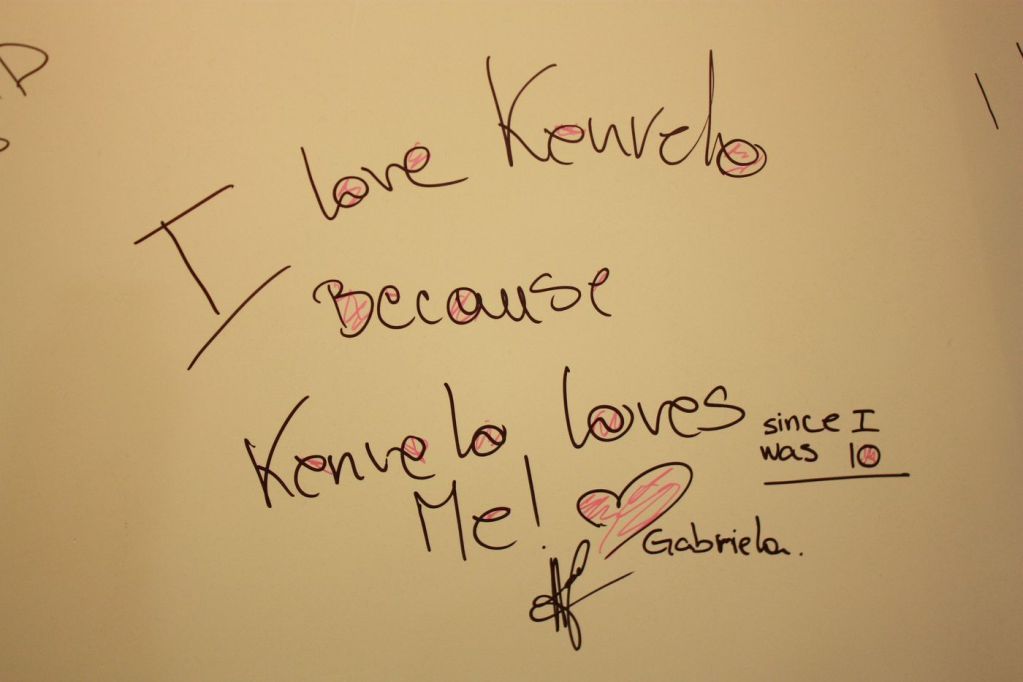 I love Kenvelo
Because
Kenvelo loves
Me!
since I
was 10
Gabriela.